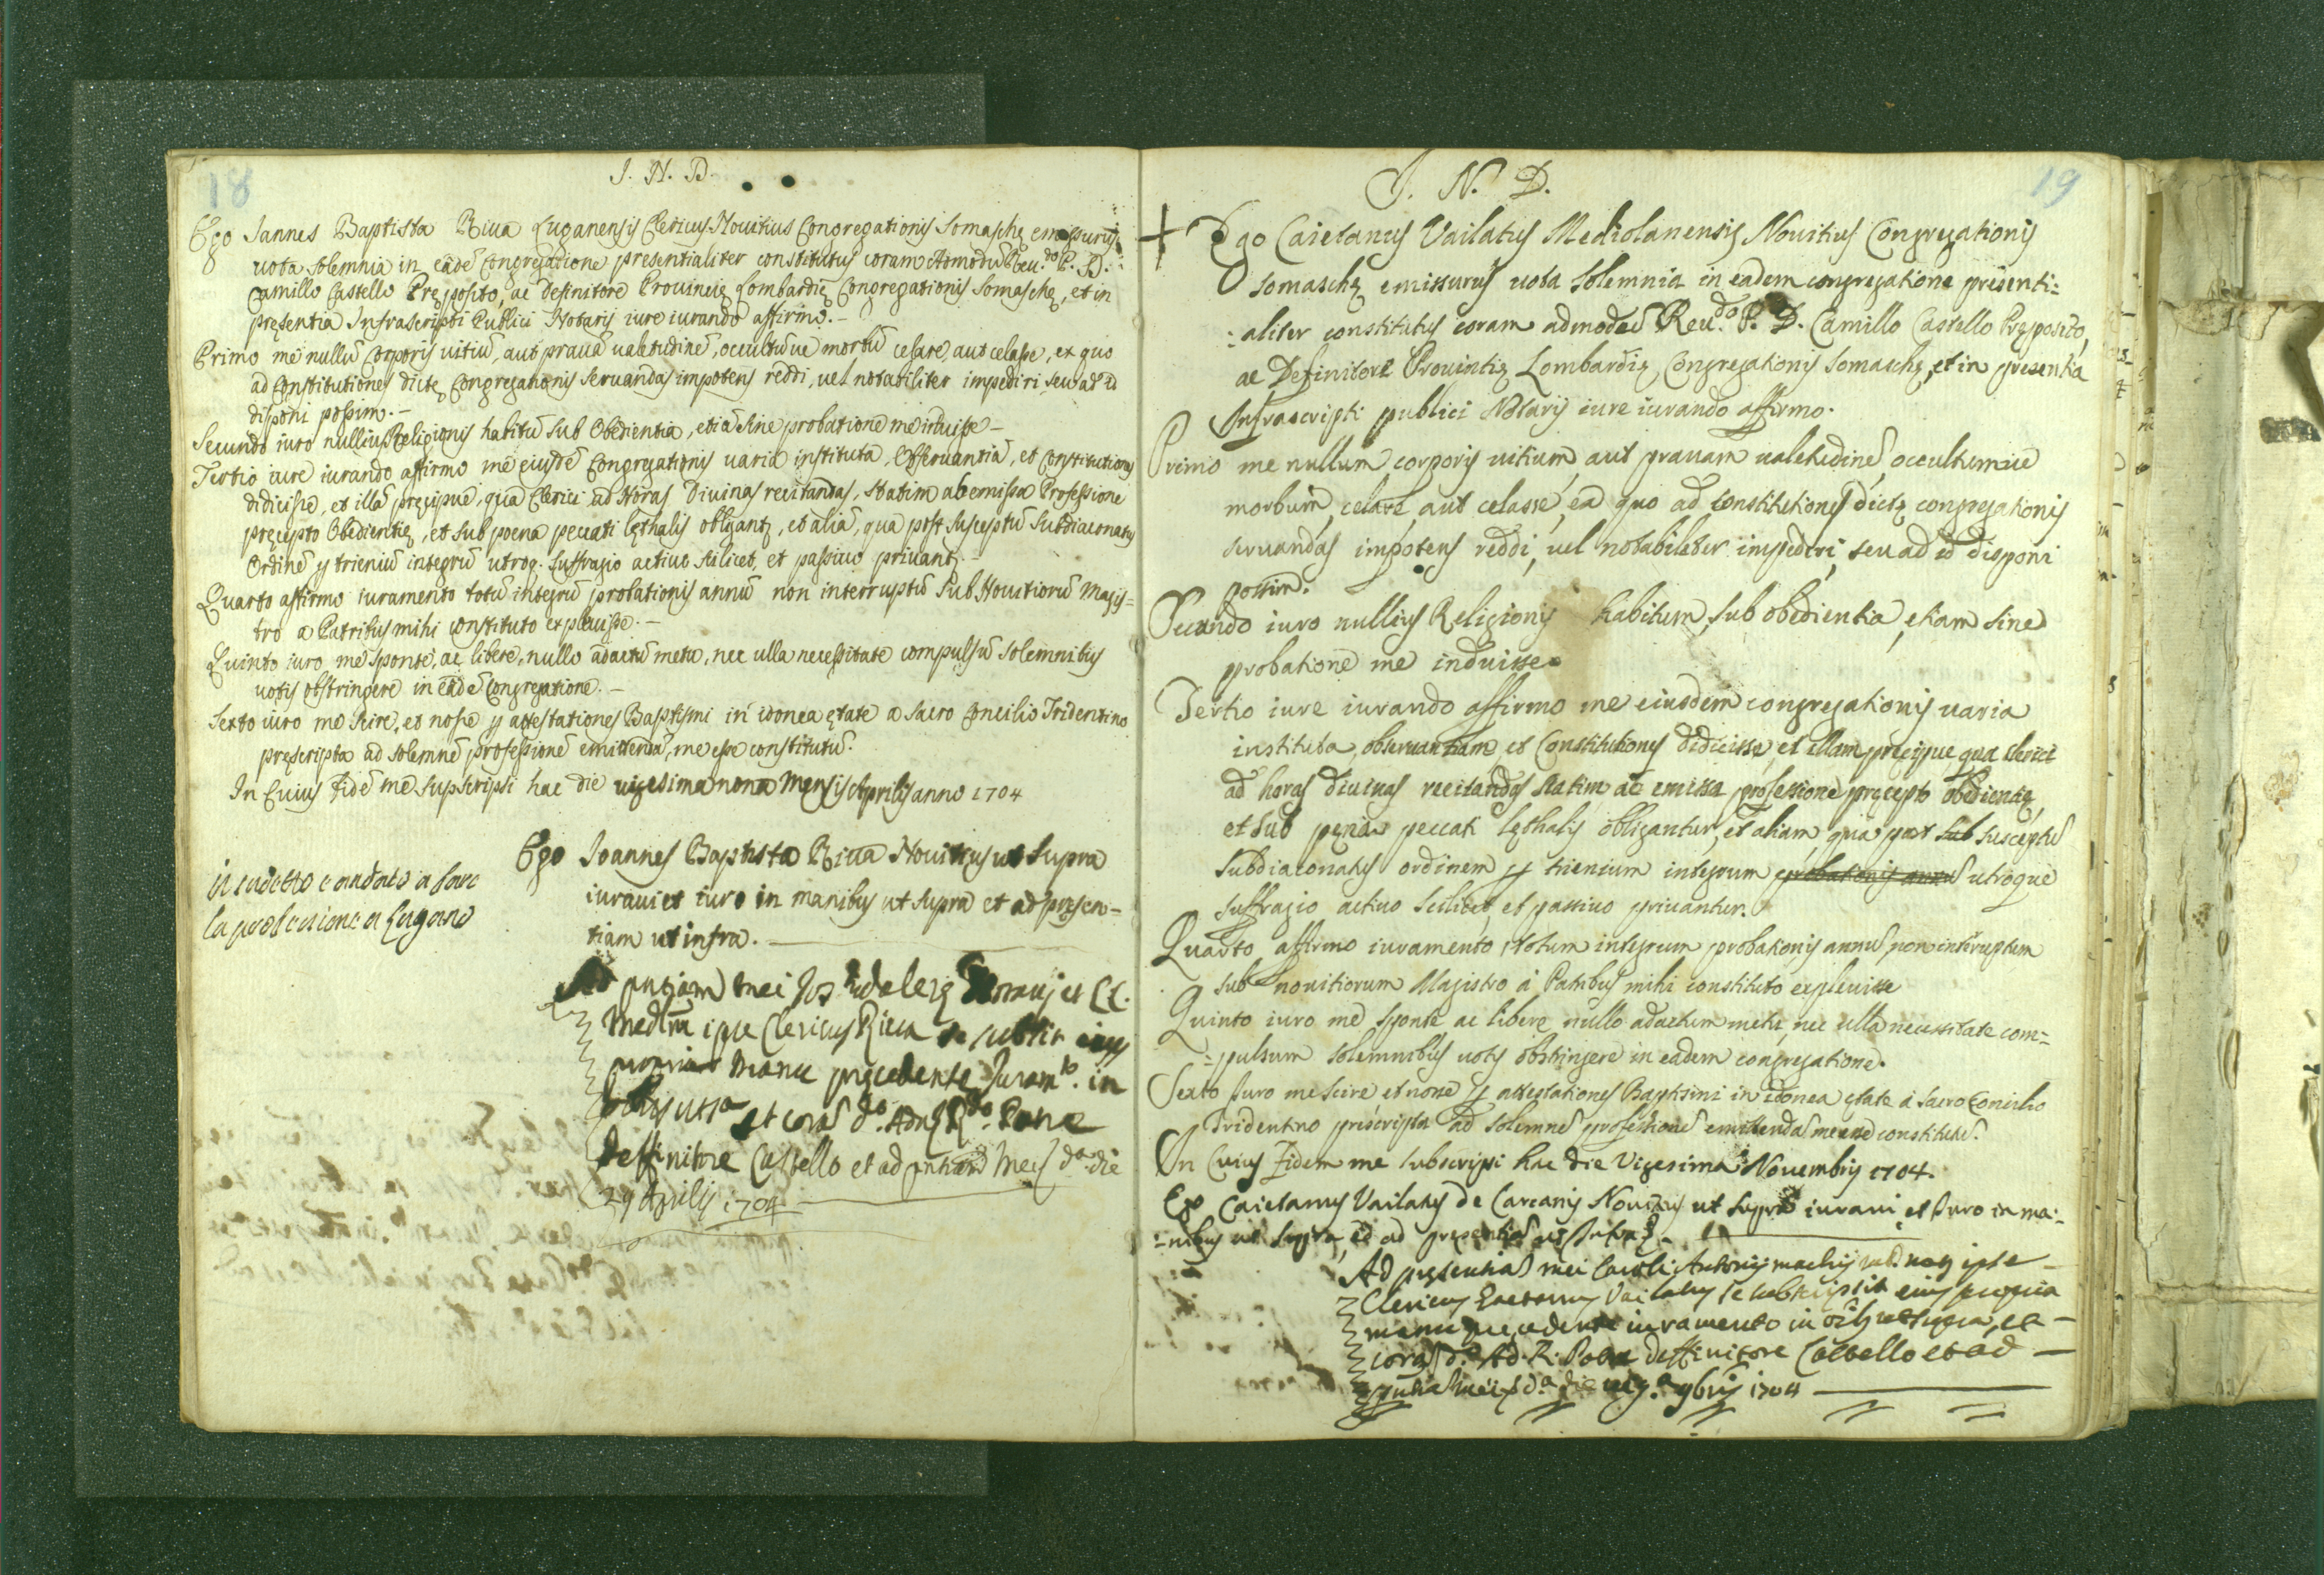 18
I. N. D.
Ego Iannes Baptista Riua Luganensis Clericus Nouitius Congregationis Somaschę emissurus
uota solemnia in eadē Congregatione presentialiter constitutus coram Admodū Reu.do P. D.
Camillo Castello Pręposito, ac Definitore Prouincię Lombardię Congregationis Somaschę, et in
pręsentia Infrascripti Publici Notarij iure iurando affirmo.-
Primo me nullū Corporis uitiū, aut prauā ualetudinē, occultū ue morbū celare, aut celasse, ex quo
ad Constitutiones dictę Congregationis seruandas impotens reddi, uel notabiliter impediri seu ad id
disponi possim.-
Secundo iuro nullius Religionis habitū sub Obedientia, etiā sine probatione me induisse-
Tertio iure iurando affirmo me eiusdē Congregationis uaria instituta, Obseruantiā, et Constitutiones
didicisse, et illā pręcipuè, qua Clerici ad Horas Diuinas recitandas, statim ac emissa Professione
pręcepto Obedientię, et sub poena peccati lęthalis obligant, et aliā, qua post susceptū Subdiaconatus
Ordinē p trieniū integrū utroq. suffragio actiuo scilicet, et passiuo priuant.-
Quarto affirmo iuramento totū integrū probationis annū non interruptū sub Nouitiorū Magis=
tro a Patribus mihi constituto expleuisse.-
Quinto iuro me sponte, ac libere, nullo adactū metu, nec ulla necessitate compulsū solemnibus
uotis obstringere in eadē Congregatione.-
Sexto iuro me scire, et nosse p attestationes Baptismi in idonea ętate a Sacro Concilio Tridentino
pręscripta ad solemnē professionē emittendā, me esse constitutū.
In Cuius fidē me supscripsi hac die uigesima nona Mensis Aprilis anno 1704
Ego Ioannes Baptista Riua Nouitius ut supra
iuraui et iuro in manibus ut supra et ad presen-
tiam ut infra.
il sudetto è andato a fare
la professione a Lugano
Ad pntiam mei
ipse Clericus Riua se subscr. eius
manu precedente Juram.to in
et corā d.o Adm R.do Patre
Deffinitore Castello et ad pntiam mei d.a die
29 Aprilis 1704
19
I. N. D.
Ego Caietanus Vailatus Mediolanensis Nouitius Congregationis
somaschę emissurus uota solemnia in eadem congregatione presenti=
=aliter constitutus coram admodū Reu.do P. D. Camillo Castello Pręposito,
ac Definitore Prouintię Lombardię Congregationis somaschę, et in presentia
Infrascripti publici Notarij iure iurando affirmo.
Primo me nullum corporis uitium, aut prauam ualetudinē, occultumue
morbum, celare, aut celasse, ex quo ad constitutiones dictę congregationis
seruandas impotens reddi, uel notabiliter impediri, seu ad id disponi
possim.
Secundo iuro nullius Religionis habitum, sub obedientia, etiam sine
probatione me induisse.
Tertio iure iurando affirmo me eiusdem congregationis uaria
instituta, obseruantiam, et Constitutiones didicisse, et illam precipue qua clerici
ad horas diuinas recitandas statim ac emissa professione pręcepto obedientię,
et sub pęna peccati lęthalis obligantur, et aliam, qua post sub susceptū
subdiaconatus ordinem p trienium integrum probationis annū utroque
suffragio actiuo scilicet, et passiuo priuantur.
Quarto affirmo iuramento, totum integrum probationis annū non interruptum
sub nouitiorum Magistro à Patribus mihi constituto expleuisse
Quinto iuro me sponte ac libere nullo adactum metu, nec ulla necessitate com=
=pulsum solemnibus uotis obstringere in eadem congregatione.
Sexto Iuro me scire et nosse p attestationes Baptismi in idonea ętate à sacro Concilio
Tridentino préscripta ad solemnē professionē emittendā me esse constitutū.
In Cuius Fidem me subscripsi hac die Vigesima Nouembris 1704.
Ego Caietanus Vailatus de Carcanis Nouitius ut supra iuraui et Iuro in ma=
=nibus ut supra, et ad presentiā ut Infra.
Ad pręsentiā mei Caroli Antonij ipse
Clericus Gaetanus Vailatus se subscripsit eius propria
manu precedente iuramento in ut supra, et
corā d.o Ad. R. Patre deffinitore Castello et ad
pntiā mei d.a die uig.a 9bris 1704